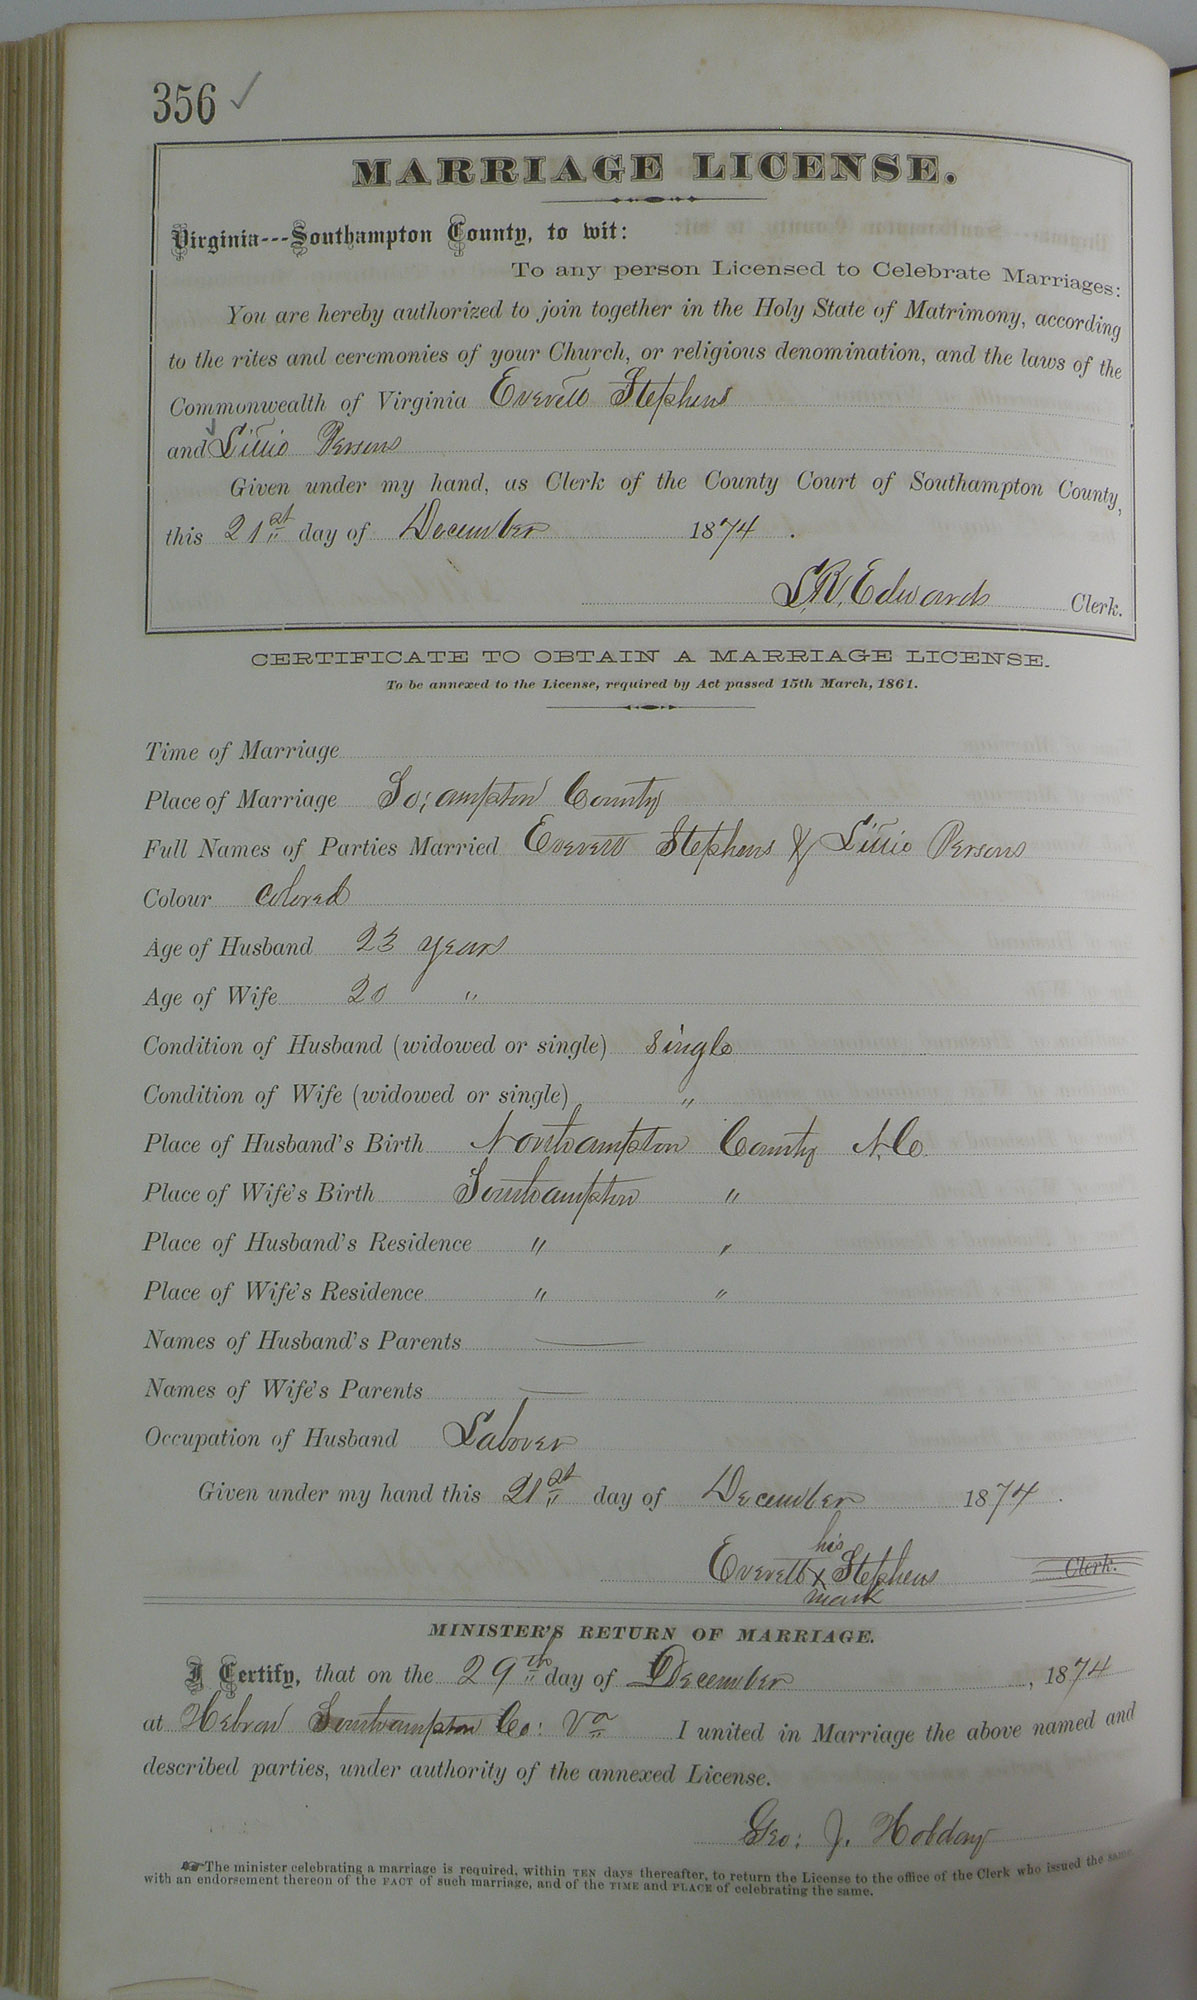 356 ✓
MARRIAGE LICENSE.
Virginia---Southampton County, to wit:
To any person Licensed to Celebrate Marriages:
You are hereby authorized to join together in the Holy State of Matrimony, according
to the rites and ceremonies of your Church, or religious denomination, and the laws of the
Commonwealth of Virginia Everett Stephens
and Persons
Given under my hand, as Clerk of the County Court of Southampton County,
this 21st day of December 1874.
L.R. Edwards Clerk.
CERTIFICATE TO OBTAIN A MARRIAGE LICENSE.
To be annexed to the License, required by Act passed 15th March, 1861.
Time of Marriage
Place of Marriage So;ampton County
Full Names of Parties Married Everett Stephens & Persons
Colour Colored
Age of Husband 23 years
Age of Wife 20 "
Condition of Husband (widowed or single) single
Condition of Wife (widowed or single) "
Place of Husband's Birth Northampton County N.C.
Place of Wife's Birth Southampton "
Place of Husband's Residence " "
Place of Wife's Residence " "
Names of Husband's Parents —
Names of Wife's Parents —
Occupation of Husband Laborer
Given under my hand this 21st day of December 1874.
his
Everett X Stephens Clerk.
mark
MINISTER'S RETURN OF MARRIAGE.
I Certify, that on the 29th day of December, 1874
at Hebron Southampton Co: Va I united in Marriage the above named and
described parties, under authority of the annexed License.
Geo: J. Hobday
☞The minister celebrating a marriage is required, within TEN days thereafter, to return the License to the office of the Clerk who issued the same
with an endorsement thereon of the FACT of such marriage, and of the TIME and PLACE of celebrating the same.